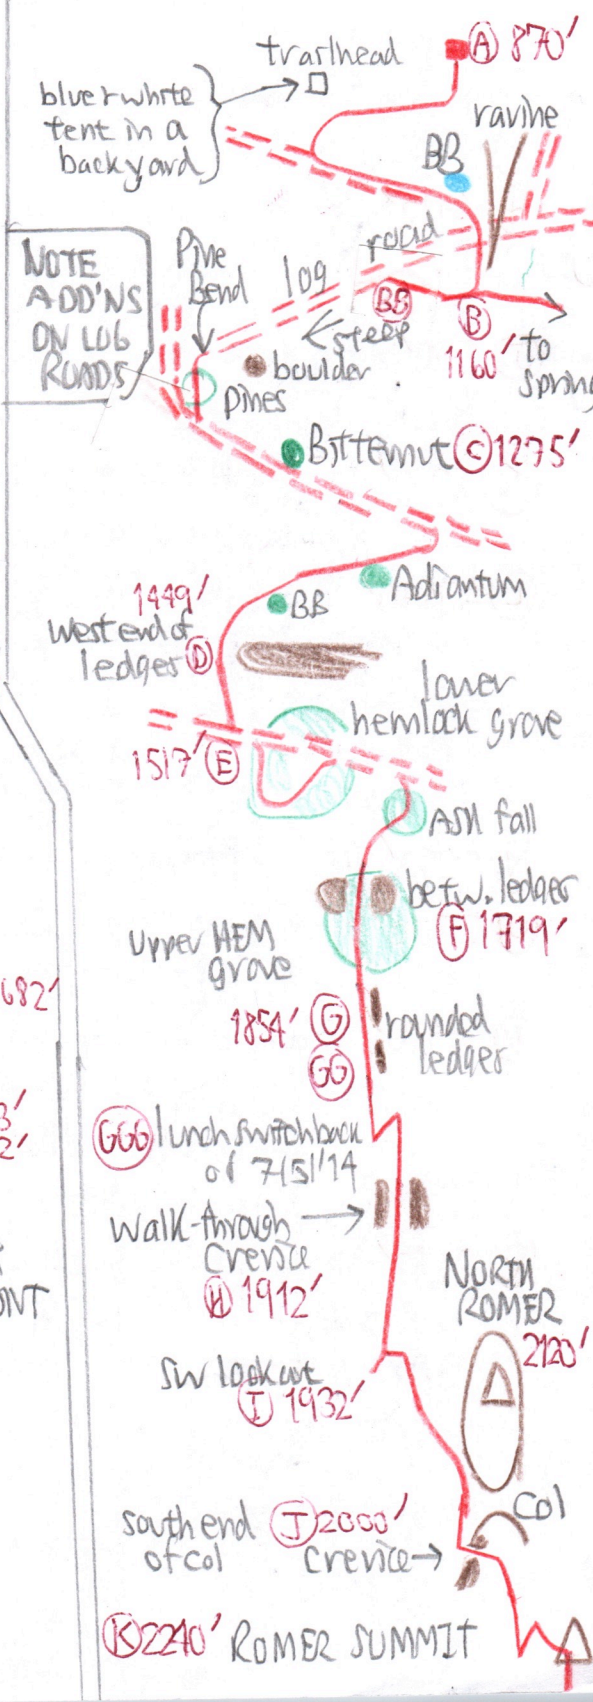 trailhead
A 870'
blue & white
tent in a
backyard
ravine
BB
NOTE
ADD'NS
ON LOG
ROADS
Pine
Bend
log
road
BB
B
1160'
to
spring
steep
boulder
pines
Bitternut C 1275'
Adiantum
BB
1449'
West end of
ledges D
lower
hemlock grove
1517' E
Ash fall
betw. ledges
F 1719'
Upper HEM
grove
682'
1854' G
rounded
ledges
GG
GGG lunch switchback
of 7/5/'14
3'
2'
Walk-through
Crevice
H 1912'
ONT
NORTH
ROMER
2120'
SW lookout
I 1932'
Col
south end
of col
J 2000'
crevice
K 2240' ROMER SUMMIT